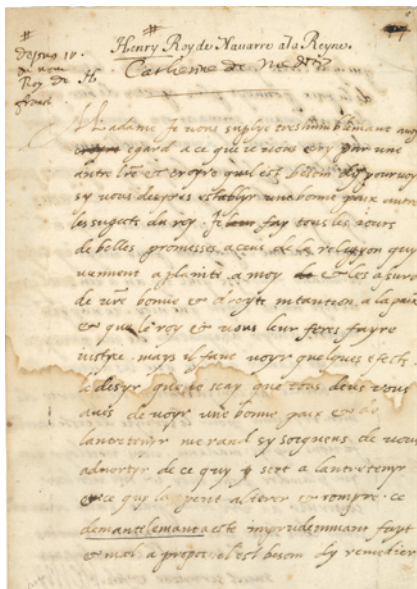 Henry Roy de Navarre a la Reyne.
Catherine de Medicis
depuis IV.
du nom
Roy de
Madame Je vous suplye treshumblemant avoyr
egard a ce que ie vous ecry par une
autre lre et croyre quil est besoin dy pourvoyr
sy vous desyres establyr une bonne paix antre
les sugects du roy. Je fay tous les iours
de belles promesses a ceus de la relegyon quy
vienent a plainte a moy et les asure
de vre bonne et droyte intantion a la paix
et que le roy et vous leur feres fayre
iustice. mays il faut voyr quelques efects.
le desyr que ie scay que tous deus vous
aves de voyr une bonne paix et de
lantretenyr me rand sy soigneus de vous
advertyr de ce quy sert a lantretenyr
et ce quy la peut alterer et rompre. ce
demantelemant a este imprudemmant fayt
et mal a propos. il est besoin dy remedier